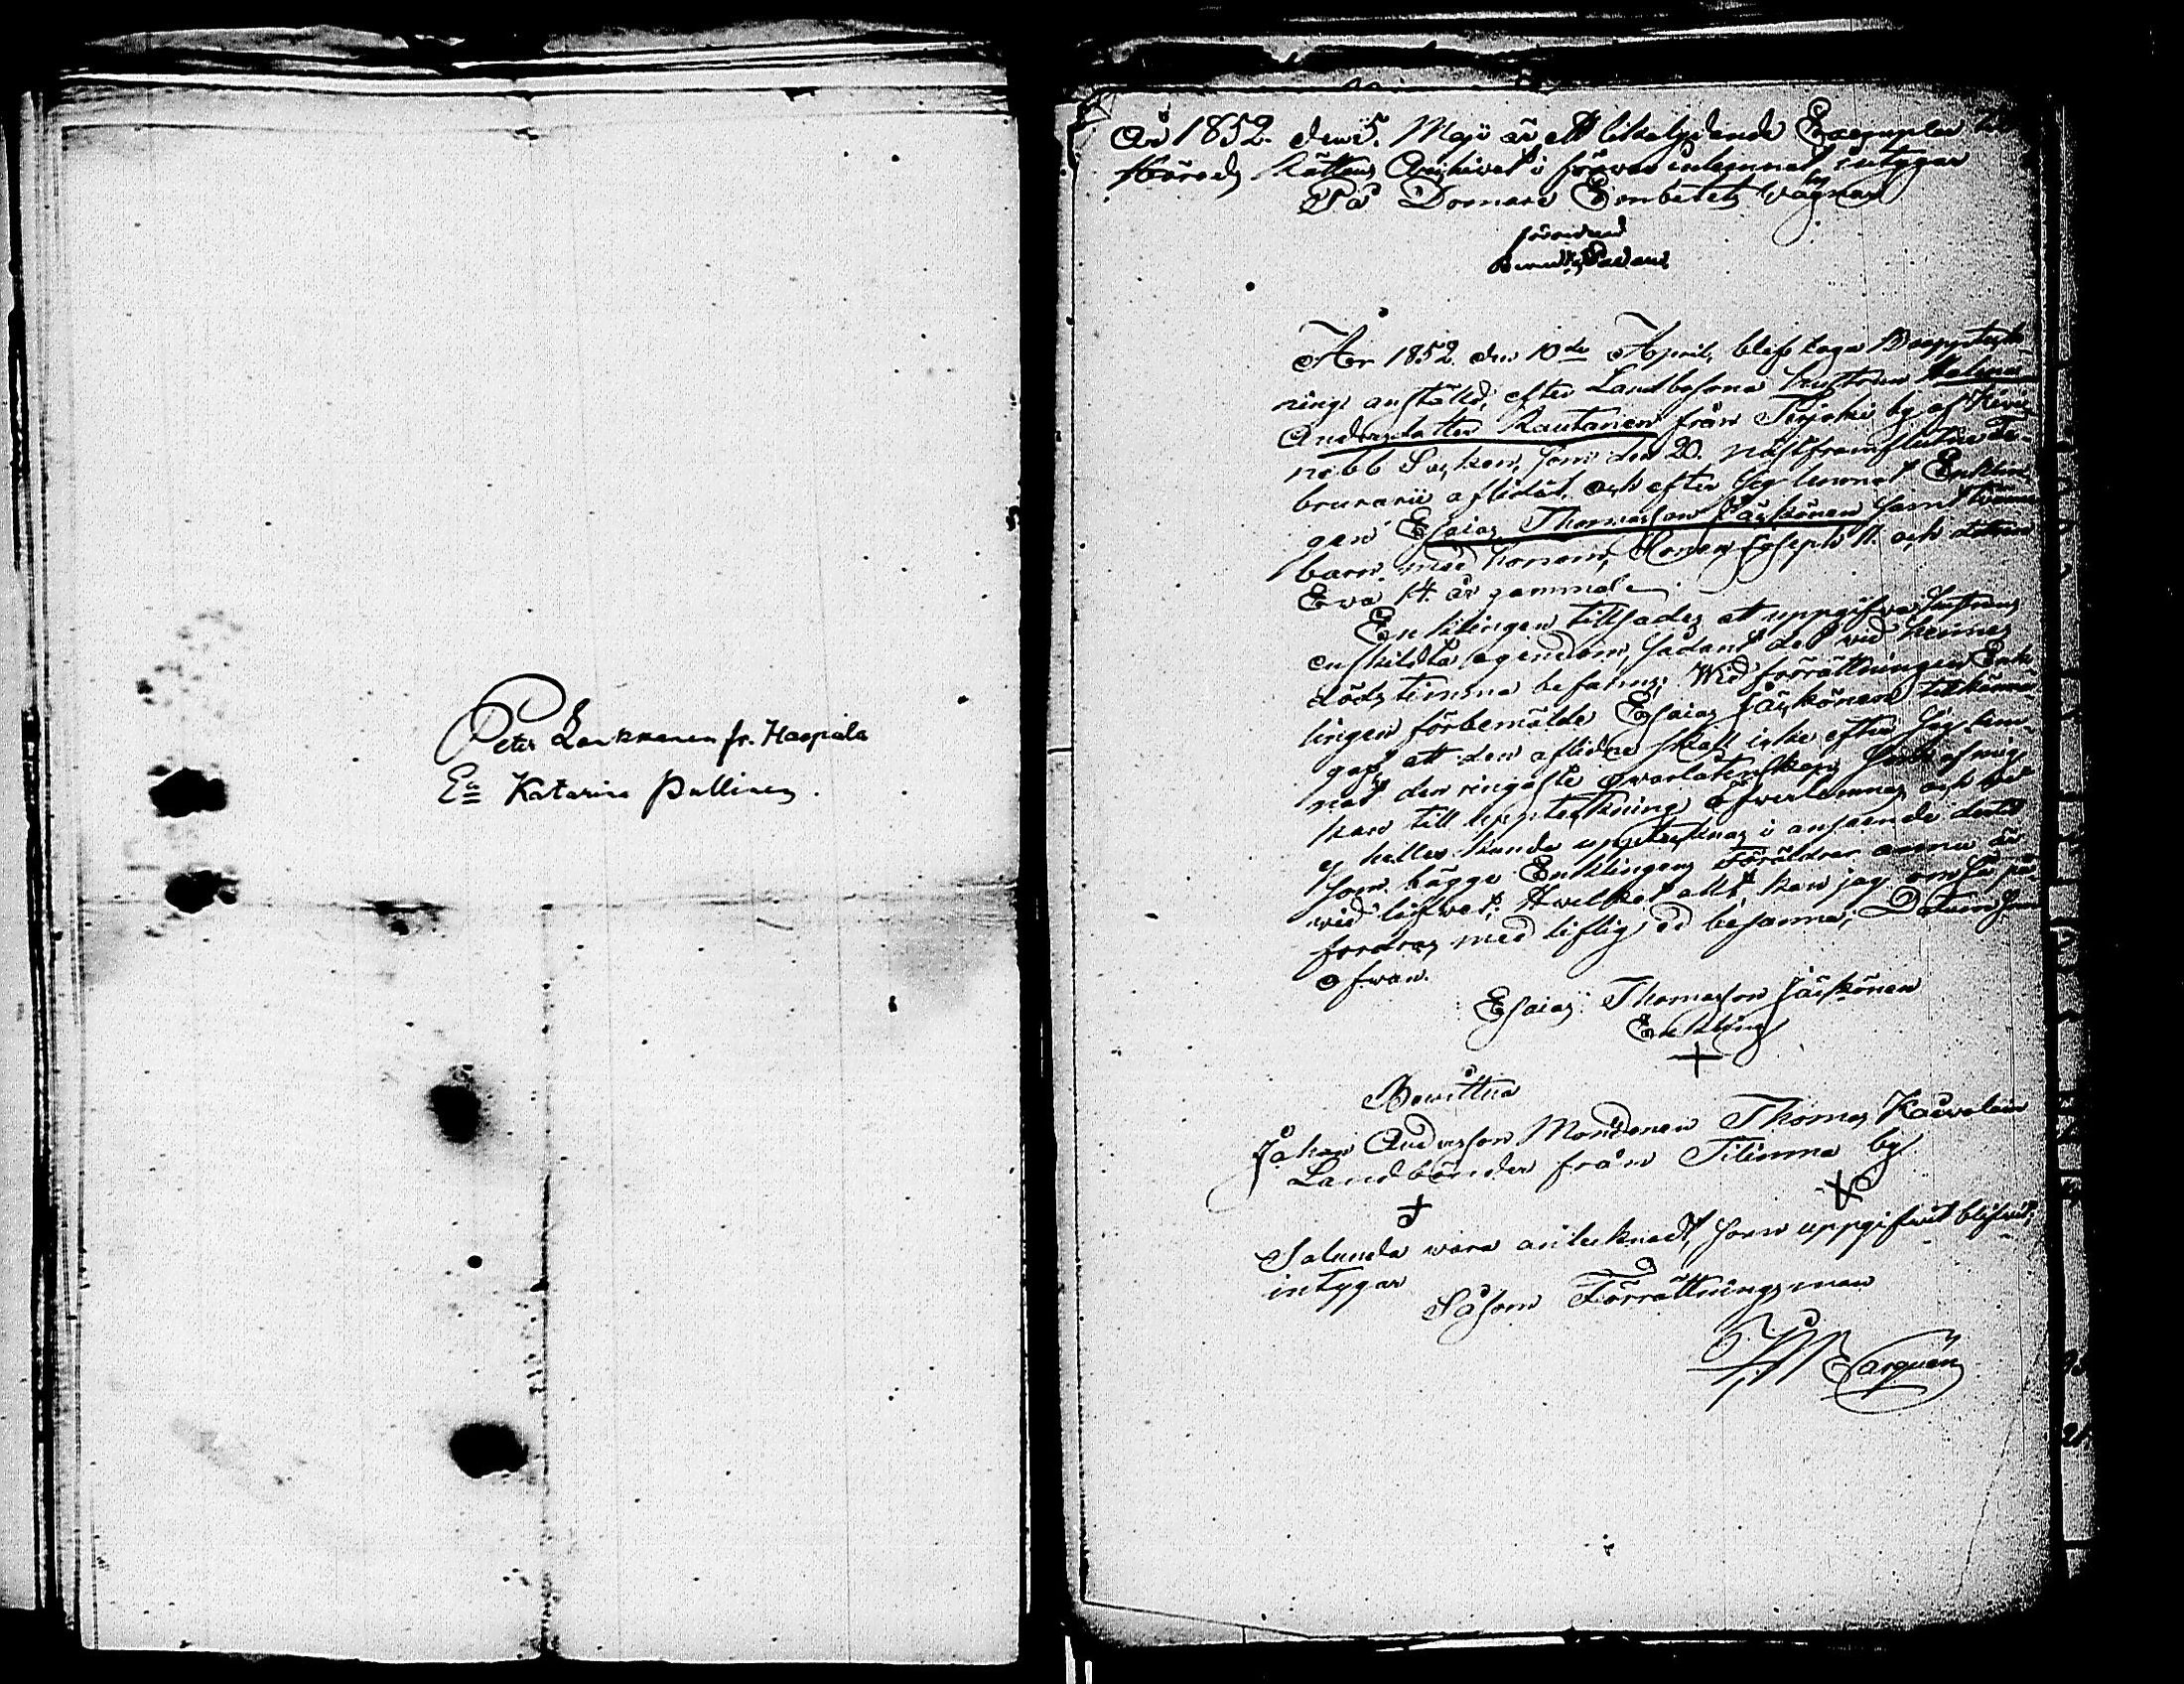 Peter Lankkanen fr. Haapiala
Ea Katarina Pullinen.
År 1852. den 5. Maji är ett likalydande Exemplar till
Härads Rättens Archivet i förvar inlemnat, intygar
På Domare Embetets vägnar
År 1852. den 10de April, blef laga Bouppteck-
ning anstäld, efter Landbofsona hustrun Helena
Andersdotter Rautanen från Terjoki by af Kive-
nebb Socken, som den 20. nästframflutne Fe-
bruarii aflidit, och efter sig lemnat Enklin-
gen Esaias Thomasson Jäskönen samt tvänne
barn med honom, Sonen Joseph 11. och dottren
Eva 14. år gammal.
Enklingen tillsades at uppgifva hustruns
enskildta egendom, sådant det vid hennes
dödstimma befanns; Vid förrättningen Enk-
lingen förbemälde Esaias Jäskönen tillkänna
gaf, att den aflidne skall icke efter sig lem-
nat den ringaste qvarlåtenskap, som af mig
kan till uppteckning öfverlemnas och det
ej heller kunde upptecknas i anseende dertil
som bägge Enklingens Föräldrar ännu är
vid lifvet; Hvilket allt kan jag om så på-
fordras med liflig ed besanna; Datum som
ofvan.
Esaias Thomasson Jäskönen
Enkling
Bevittna
Johan Andersson Mondonen Thomas Kaurolain
Landbönder från Tilimma by
Salunda vara antecknadt, som uppgifvit blifvit,
intygar
Såsom Förrättningsman